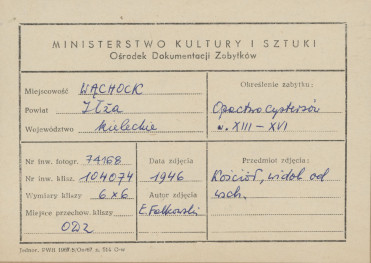 MINISTERSTWO KULTURY I SZTUKI
Ośrodek Dokumentacji Zabytków
Miejscowość WĄCHOCK
Powiat Iłża
Województwo kieleckie
Określenie zabytku:
Opactwo cystersów
w. XIII-XVI
Nr inw. fotogr. 74168
Nr inw. klisz. 104074
Wymiary kliszy 6x6
Miejsce przechow. kliszy
ODZ
Data zdjęcia
1946
Autor zdjęcia
E. Falkowski
Przedmiot zdjęcia:
Kościół, widok od
wsch.